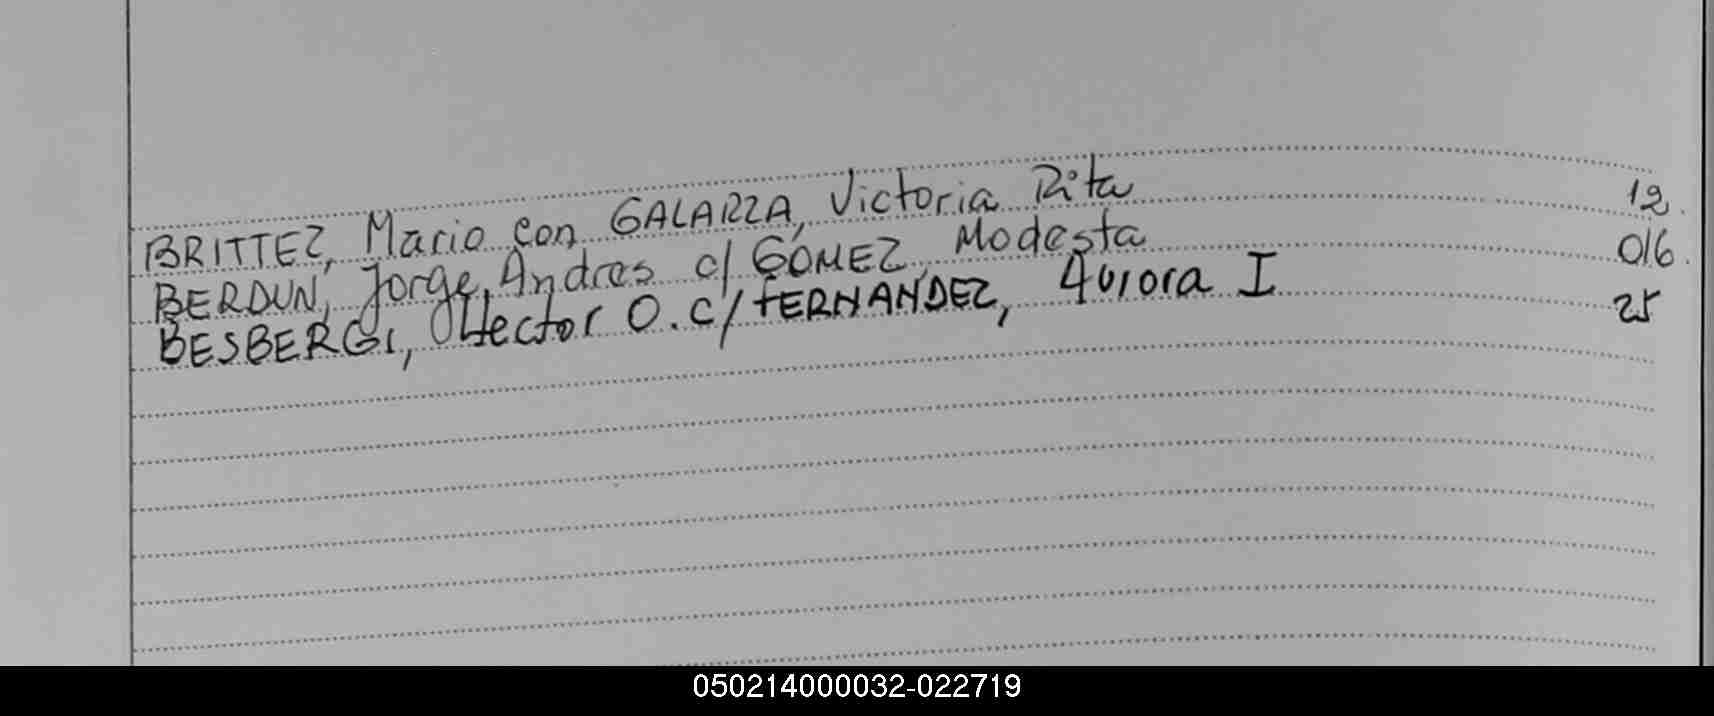 BRITTEZ, Mario con GALARZA, Victoria Rita 12.
BERDUN, Jorge Andres c/ GÓMEZ, Modesta 016.
BESBERGI, Hector O. c/ FERNANDEZ, Aurora I 25
050214000032-022719